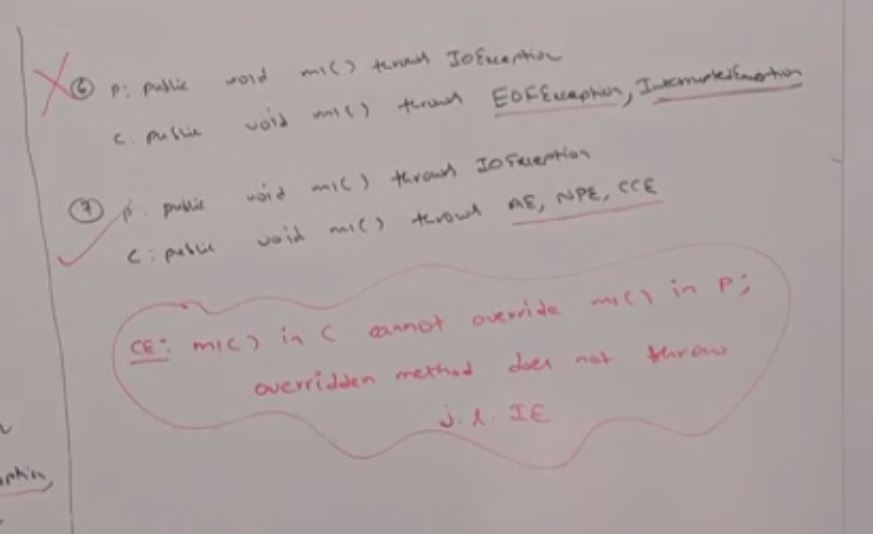 ⑥ P: public void m1() throws IOException
C: public void m1() throws EOFException, InterruptedException
⑦ P: public void m1() throws IOException
C: public void m1() throws AE, NPE, CCE
CE: m1() in C cannot override m1() in P;
overridden method does not throw
j.l.IE